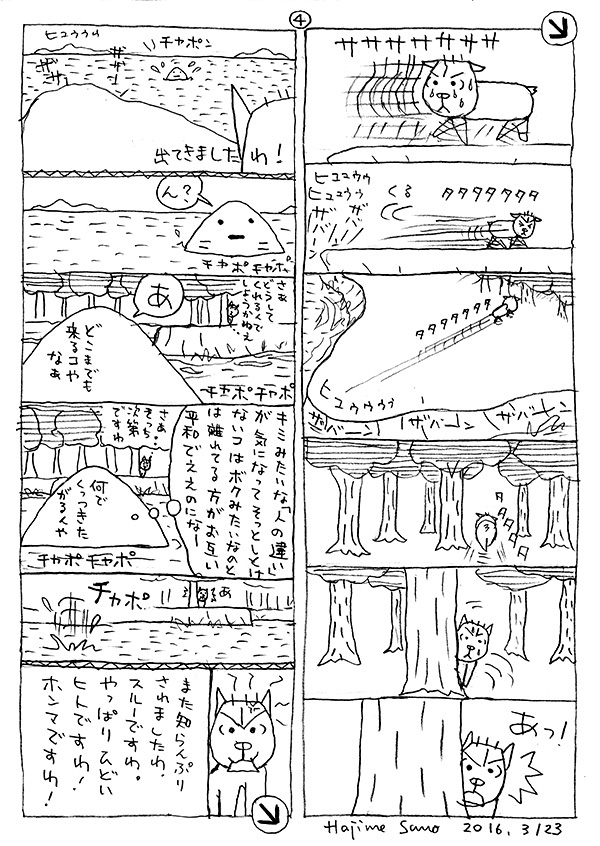 ④
ササササササササ
ヒュュウゥ
ヒュュウゥ
くる
タタタタタタタ
ザ
ザ
タタタタタタタ
ヒュウウウゥ
ザバーン
ザバーン
ザバーン
タタタタ
あっ!
Hajime Sano 2016. 3/23
ヒュウゥゥ
チャポン
ザ
ザ
ザ
ザ
出てきましたわ!
ん?
チャポ チャポ
さぁ
どうして
くれるくで
しょうかねえ
あ
どこまでも
来るコや
なぁ
チャポ チャポ
キミみたいな「人の違い」
が気になってそっとしとけ
ないコはボクみたいなのと
は離れてる方がお互い
平和でええのになー
さあ・
そっち
次第
ですわ
何で
くっつきた
がるんや
チャポ チャポ
チャポ
あ
また知らんぷり
されましたわ。
スルーですわ。
やっぱりひどい
ヒトですわ!
ホンマですわ!